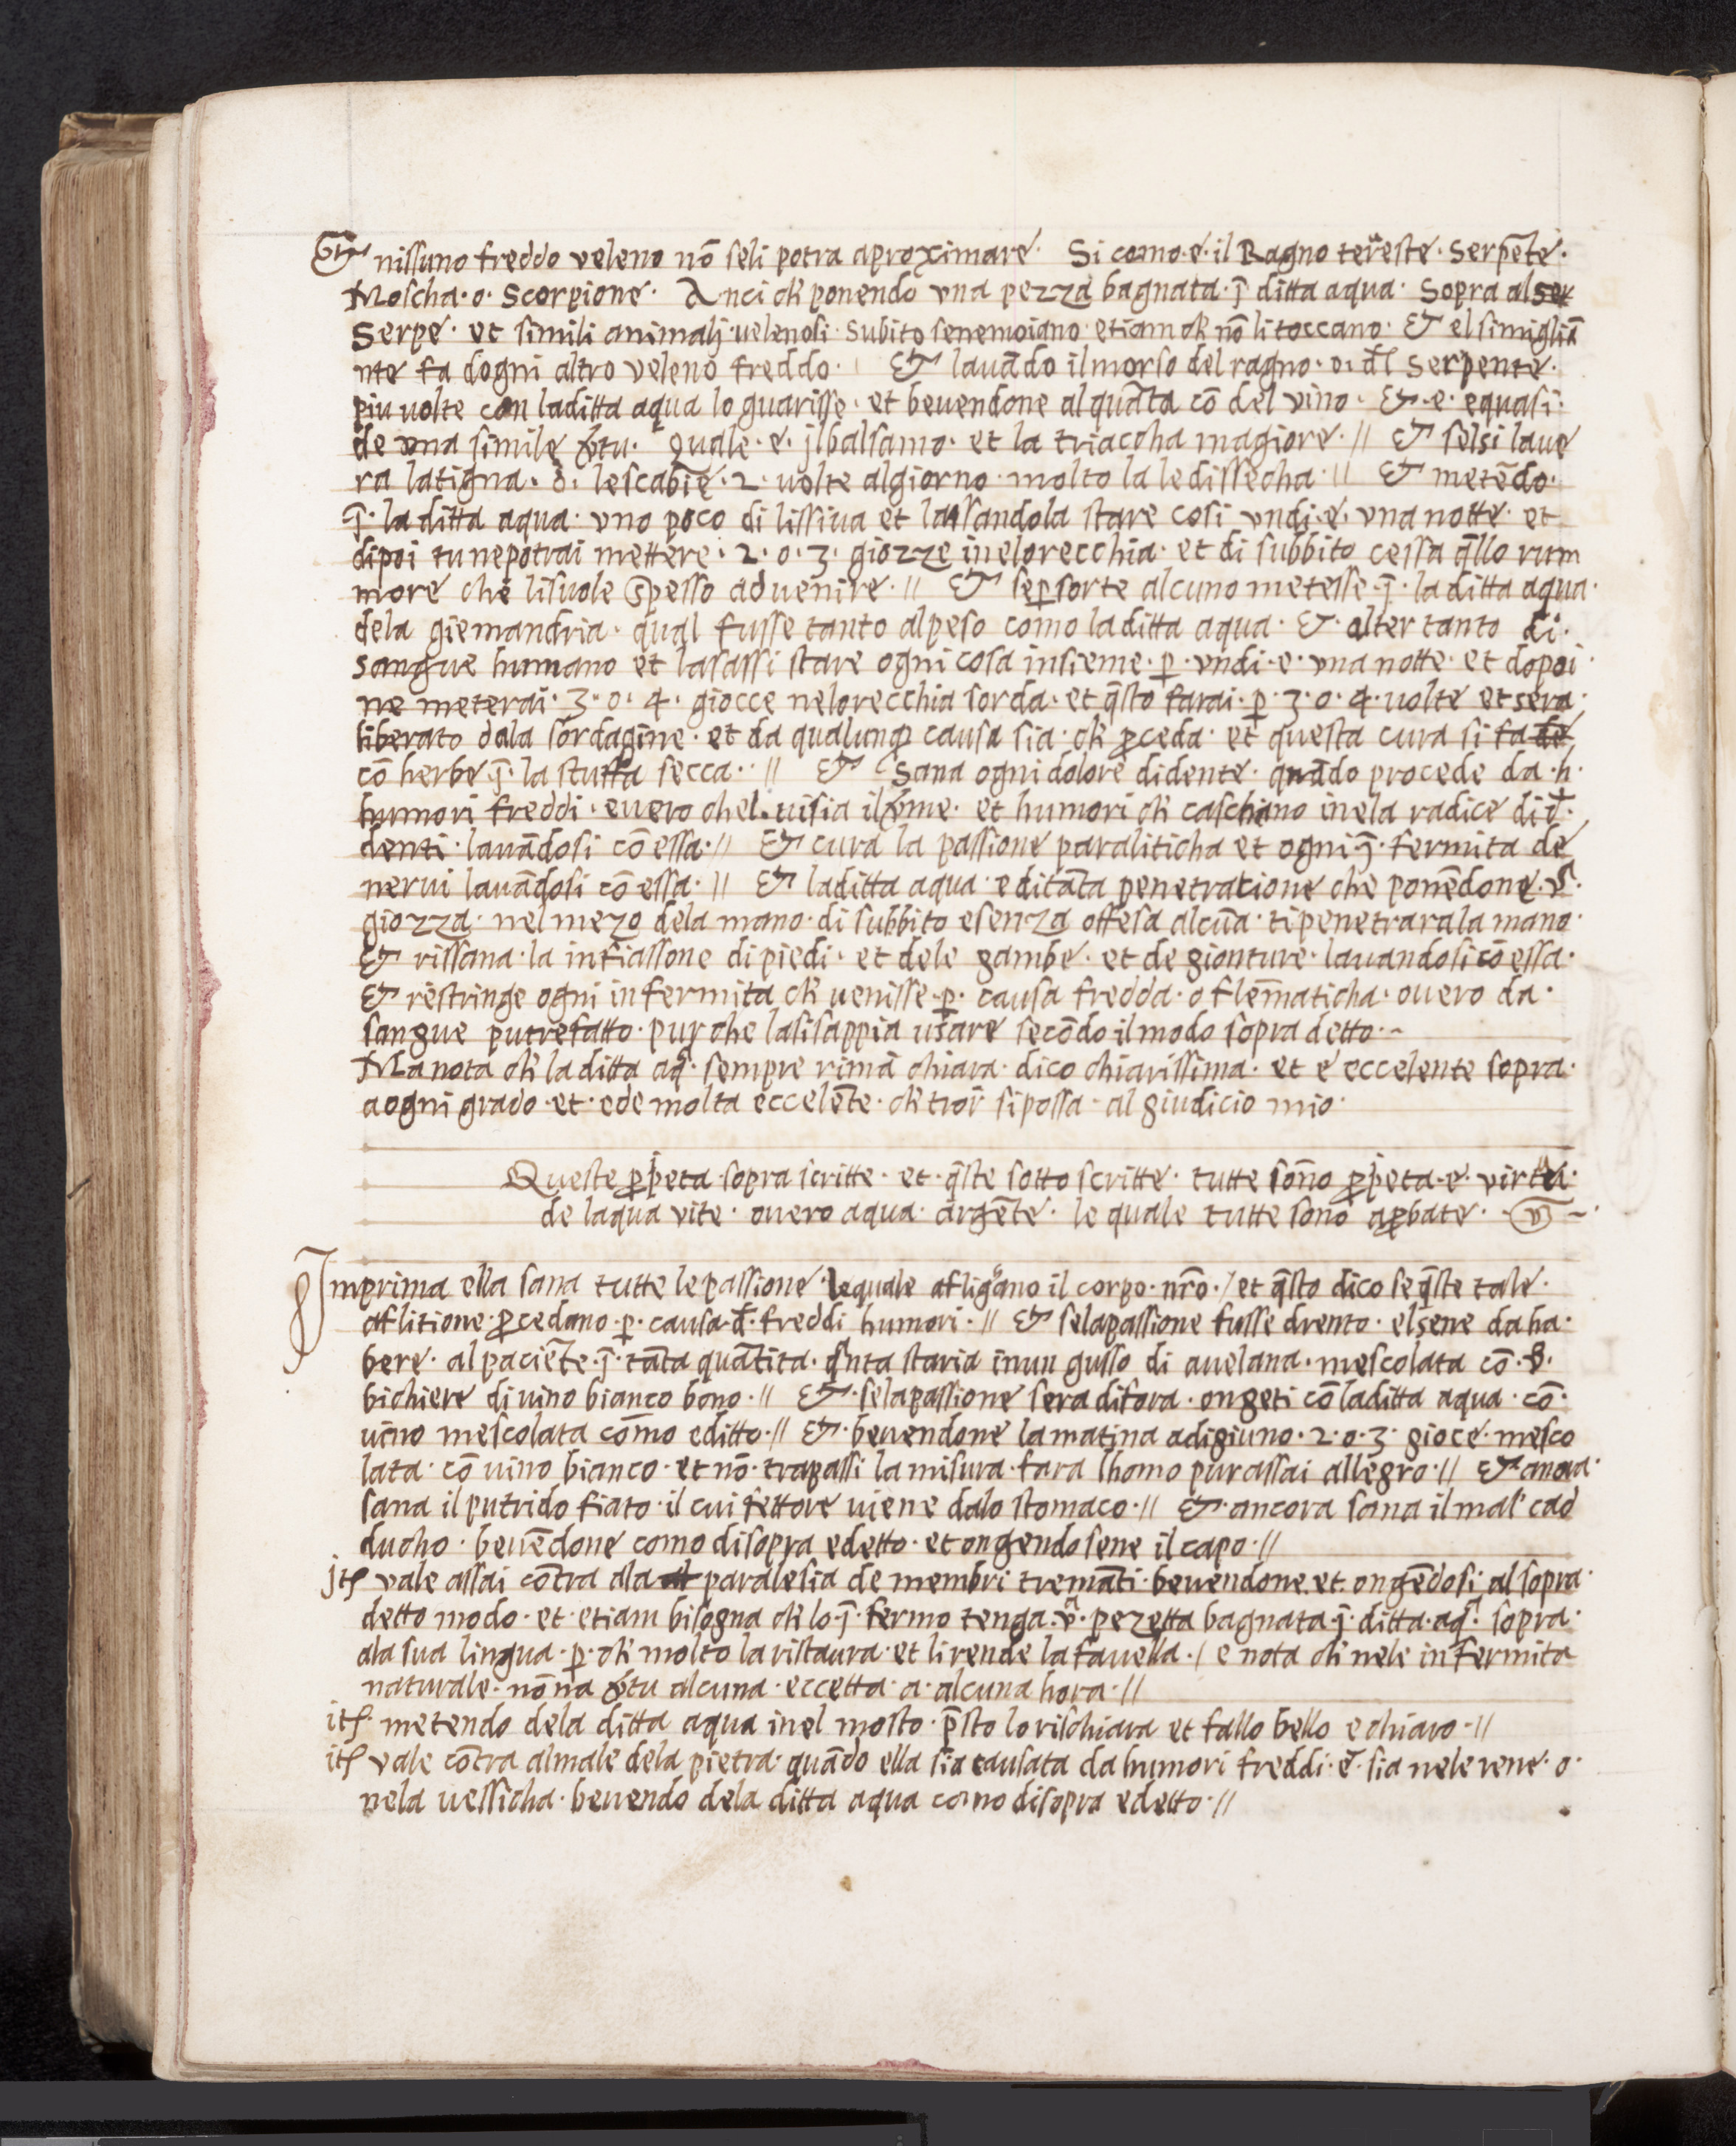 Et nissuno freddo veleno nō seli potra aproximare· Si como·e·il Ragno tereste· Serpēte·
Moscha·o·Scorpione· Anci ch̄ ponendo vna pezza bagnata·ī ditta aqua· Sopra al
Serpe· et simili animalj velenosi subito senemoiano etiam ch̄ nō li toccano· Et el simigliā
nte fa dogni altro veleno freddo· Et lauādo il morso del ragno·o·dl̄ Serpente·
piu uolte con laditta aqua lo guarisse· et beuendone alquāta cō del vino· Et·e·equasi·
de vna simile v̄tu· quale·e·jlbalsamo· et la triacoha magiore·// Et selsi laue
ra latigna·o·lescabie·2·uolte algiorno molto la ledissecha·// Et metēdo·
ī·la ditta aqua·vno poco di lissiua et lassandola stare cosi vndi·e·vna notte· et
dipoi tu nepotrai mettere·2·o·3·giozze inelorecchia· et di subbito cessa q̄llo rum
more che lisuole spesso aduenire·// Et sep̱sorte alcuno metesse·ī·la ditta aqua·
dela giemandria· qual fusse tanto alpeso como laditta aqua· Et·alter tanto di·
sangue humano et lasassi stare ogni cosa insieme·p̱·vndi·e·vna notte· et dopoi·
ne meterai·3·o·4·giocce nelorecchia sorda· et q̄sto farai·p̱·3·o·4·uolte et sera·
liberato dala sordagine· et da qualunq̄ causa sia·ch̄ p̱ceda· et questa cura si fa
cō herbe ī·la stuffa secca·// Et Sana ogni dolore didente· quādo procede da·h·
humori freddi· euero chel·uisia il v̄me· et humori ch̄ caschano inela radice di d̄·
denti·lauādosi cō essa·// Et cura la passione paraliticha et ogni ī·fermita de
nerui lauādosi cō essa·// Et laditta aqua·e ditāta penetratione che ponēdone·v̄·
giozza·nel mezo dela mano·di subbito esenza offesa alcūa·ti penetrarala mano·
Et rissana·la infiassone di piedi· et dele gambe· et de gionture·lauandosi cō essa·
Et restringe ogni infermita ch̄ uenisse·p̱·causa fredda·o flem̄aticha·ouero da·
sangue putrefatto·pur che lasisappia usare secōdo il modo sopra detto·~
Ma nota ch̄ la ditta aq̄·sempre rimā chiara·dico chiarissima· et e eccelente sopra·
aogni grado·et·ede molta eccelēte·ch̄ tror̄ si possa·al giudicio mio·
Queste p̱p̱eta sopra scritte· et·q̄ste sotto scritte· tutte son̄o p̱p̱eta·e·virtu·
de laqua vite·ouero aqua·argēte·le quale tutte sono ap̱bate·
Imprima ella sana tutte le passione lequale afligano il corpo·nr̄o·/ et q̄sto dico se q̄ste tale·
aflitione·p̱cedano·p̱·causa·d̄·freddi humori·// Et selapassione fusse drento·elsene da ha·
bere·al paciēte·ī·tāta quātita·q̄nta staria inun gusso di auelana·mescolata cō·v̄·
bichiere di uino bianco bono·// Et·selapassione sera difora·ongeti cō laditta aqua·cō·
uino mescolata cōmo editto·// Et·beuendone lamatina adigiuno·2·o·3·gioce·mesco
lata·cō uino bianco·et nō·trapassi la misura·fara lhomo pur assai allegro·// Et ancora·
sana il putrido fiato·il cui fettore uiene dalo stomaco·// Et·ancora sana il mal cad
ducho·beuēdone como disopra edetto·et ongendosene il capo·//
jtē vale assai cōtra ala paralesia de membri tremāti·beuendone et ongēdosi al sopra·
detto modo·et·etiam bisogna ch̄ lo·ī·fermo tenga·v̄·pezetta bagnata·ī·ditta·aq̄·sopra·
ala sua lingua·p̱·ch̄ molto la ristaura·et li rende la fauella·/ e nota ch̄ nele infermita
naturale·nō na v̄tu alcuna·eccetta·a·alcuna hora·//
itē metendo dela ditta aqua inel mosto·p̄sto lo rischiara et fallo bello e chiaro·//
itē vale cōtra almale dela pietra·quādo ella sia causata da humori freddi·e·sia nele rene·o·
nela uessicha·beuendo dela ditta aqua como disopra edetto·//